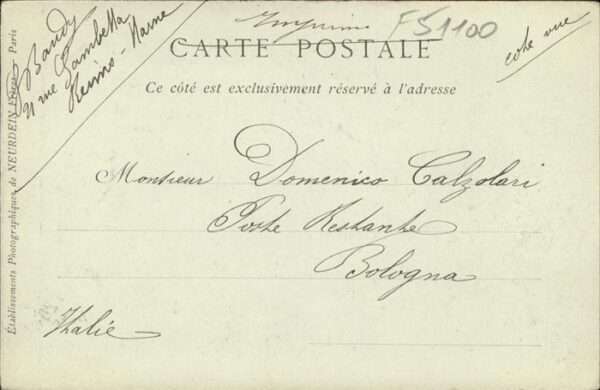 Imprimé
FS1100
CARTE POSTALE
côté vue
Ce côté est exclusivement réservé à l'adresse
Baudy
rue Gambetta
Reims - Marne
Établissements Photographiques de NEURDEIN Frères Paris
Monsieur Domenico Calzolari
Poste Restante
Bologna
Italie